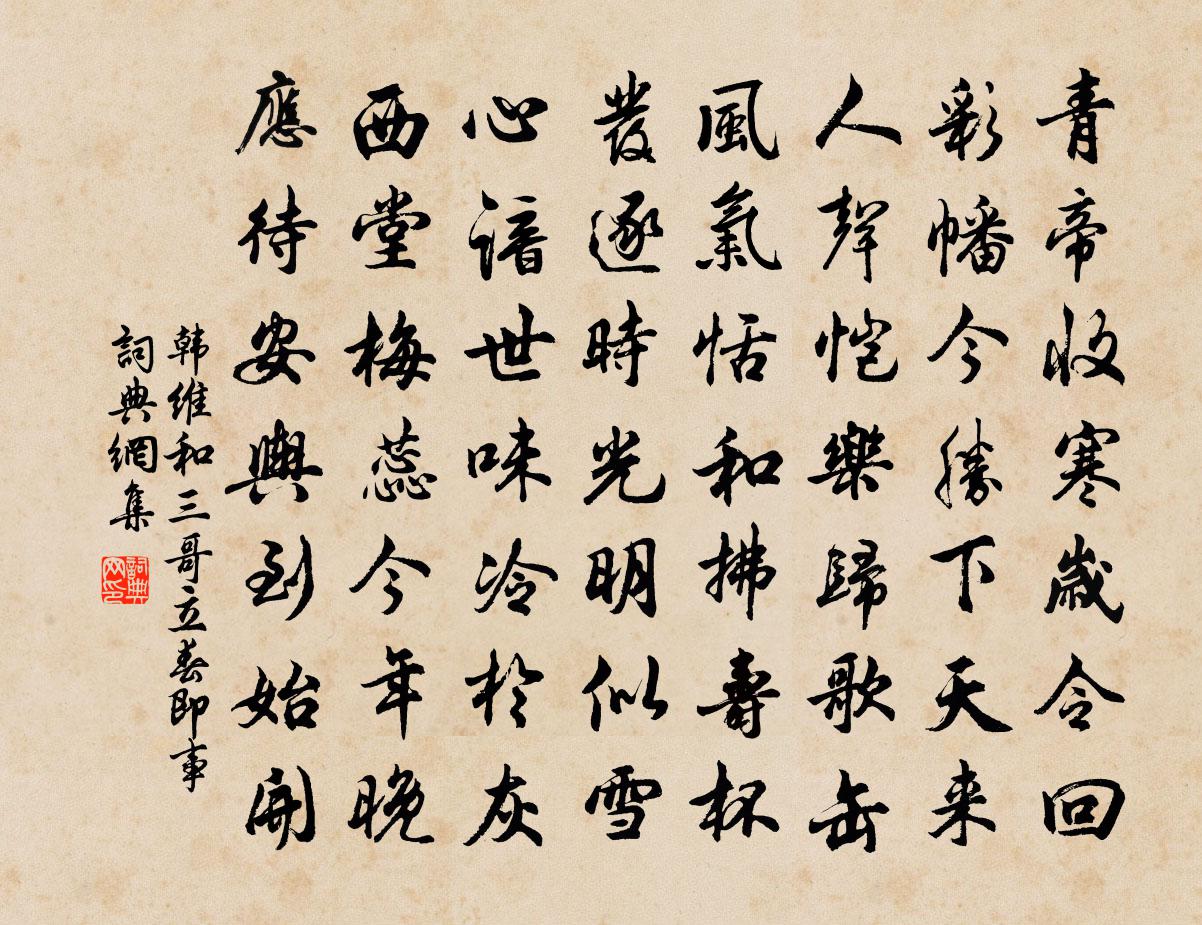 青帝收寒歲令回
彩幡今勝下天来
人聲恺樂歸歌缶
風氣恬和拂壽杯
發逐時光明似雪
心諳世味冷於灰
西堂梅蕊今年晚
應待安輿到始開
韩维和三哥立春即事
詞典網集
詞典网印